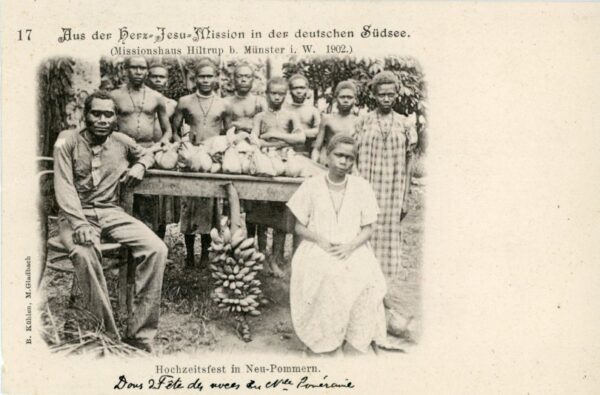 17 Aus der Herz-Jesu-Mission in der deutschen Südsee.
(Missionshaus Hiltrup b. Münster i. W. 1902.)
B. Kühlen, M.Gladbach
Hochzeitsfest in Neu-Pommern.
Dons & Fête des noces en Nlle Poméranie